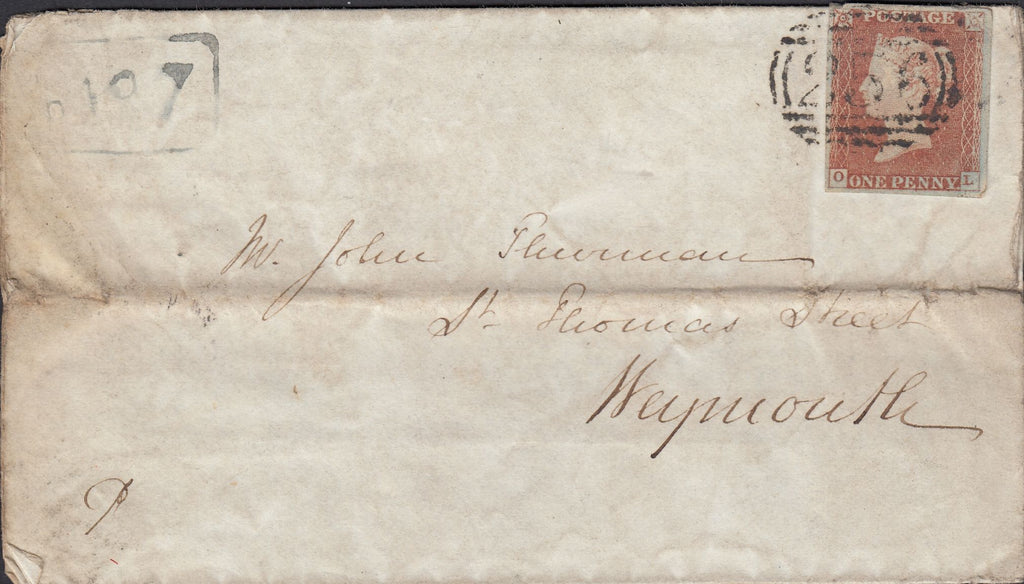 POSTAGE
O ONE PENNY L
Mr. John Thurman
St. Thomas Street
Weymouth
P